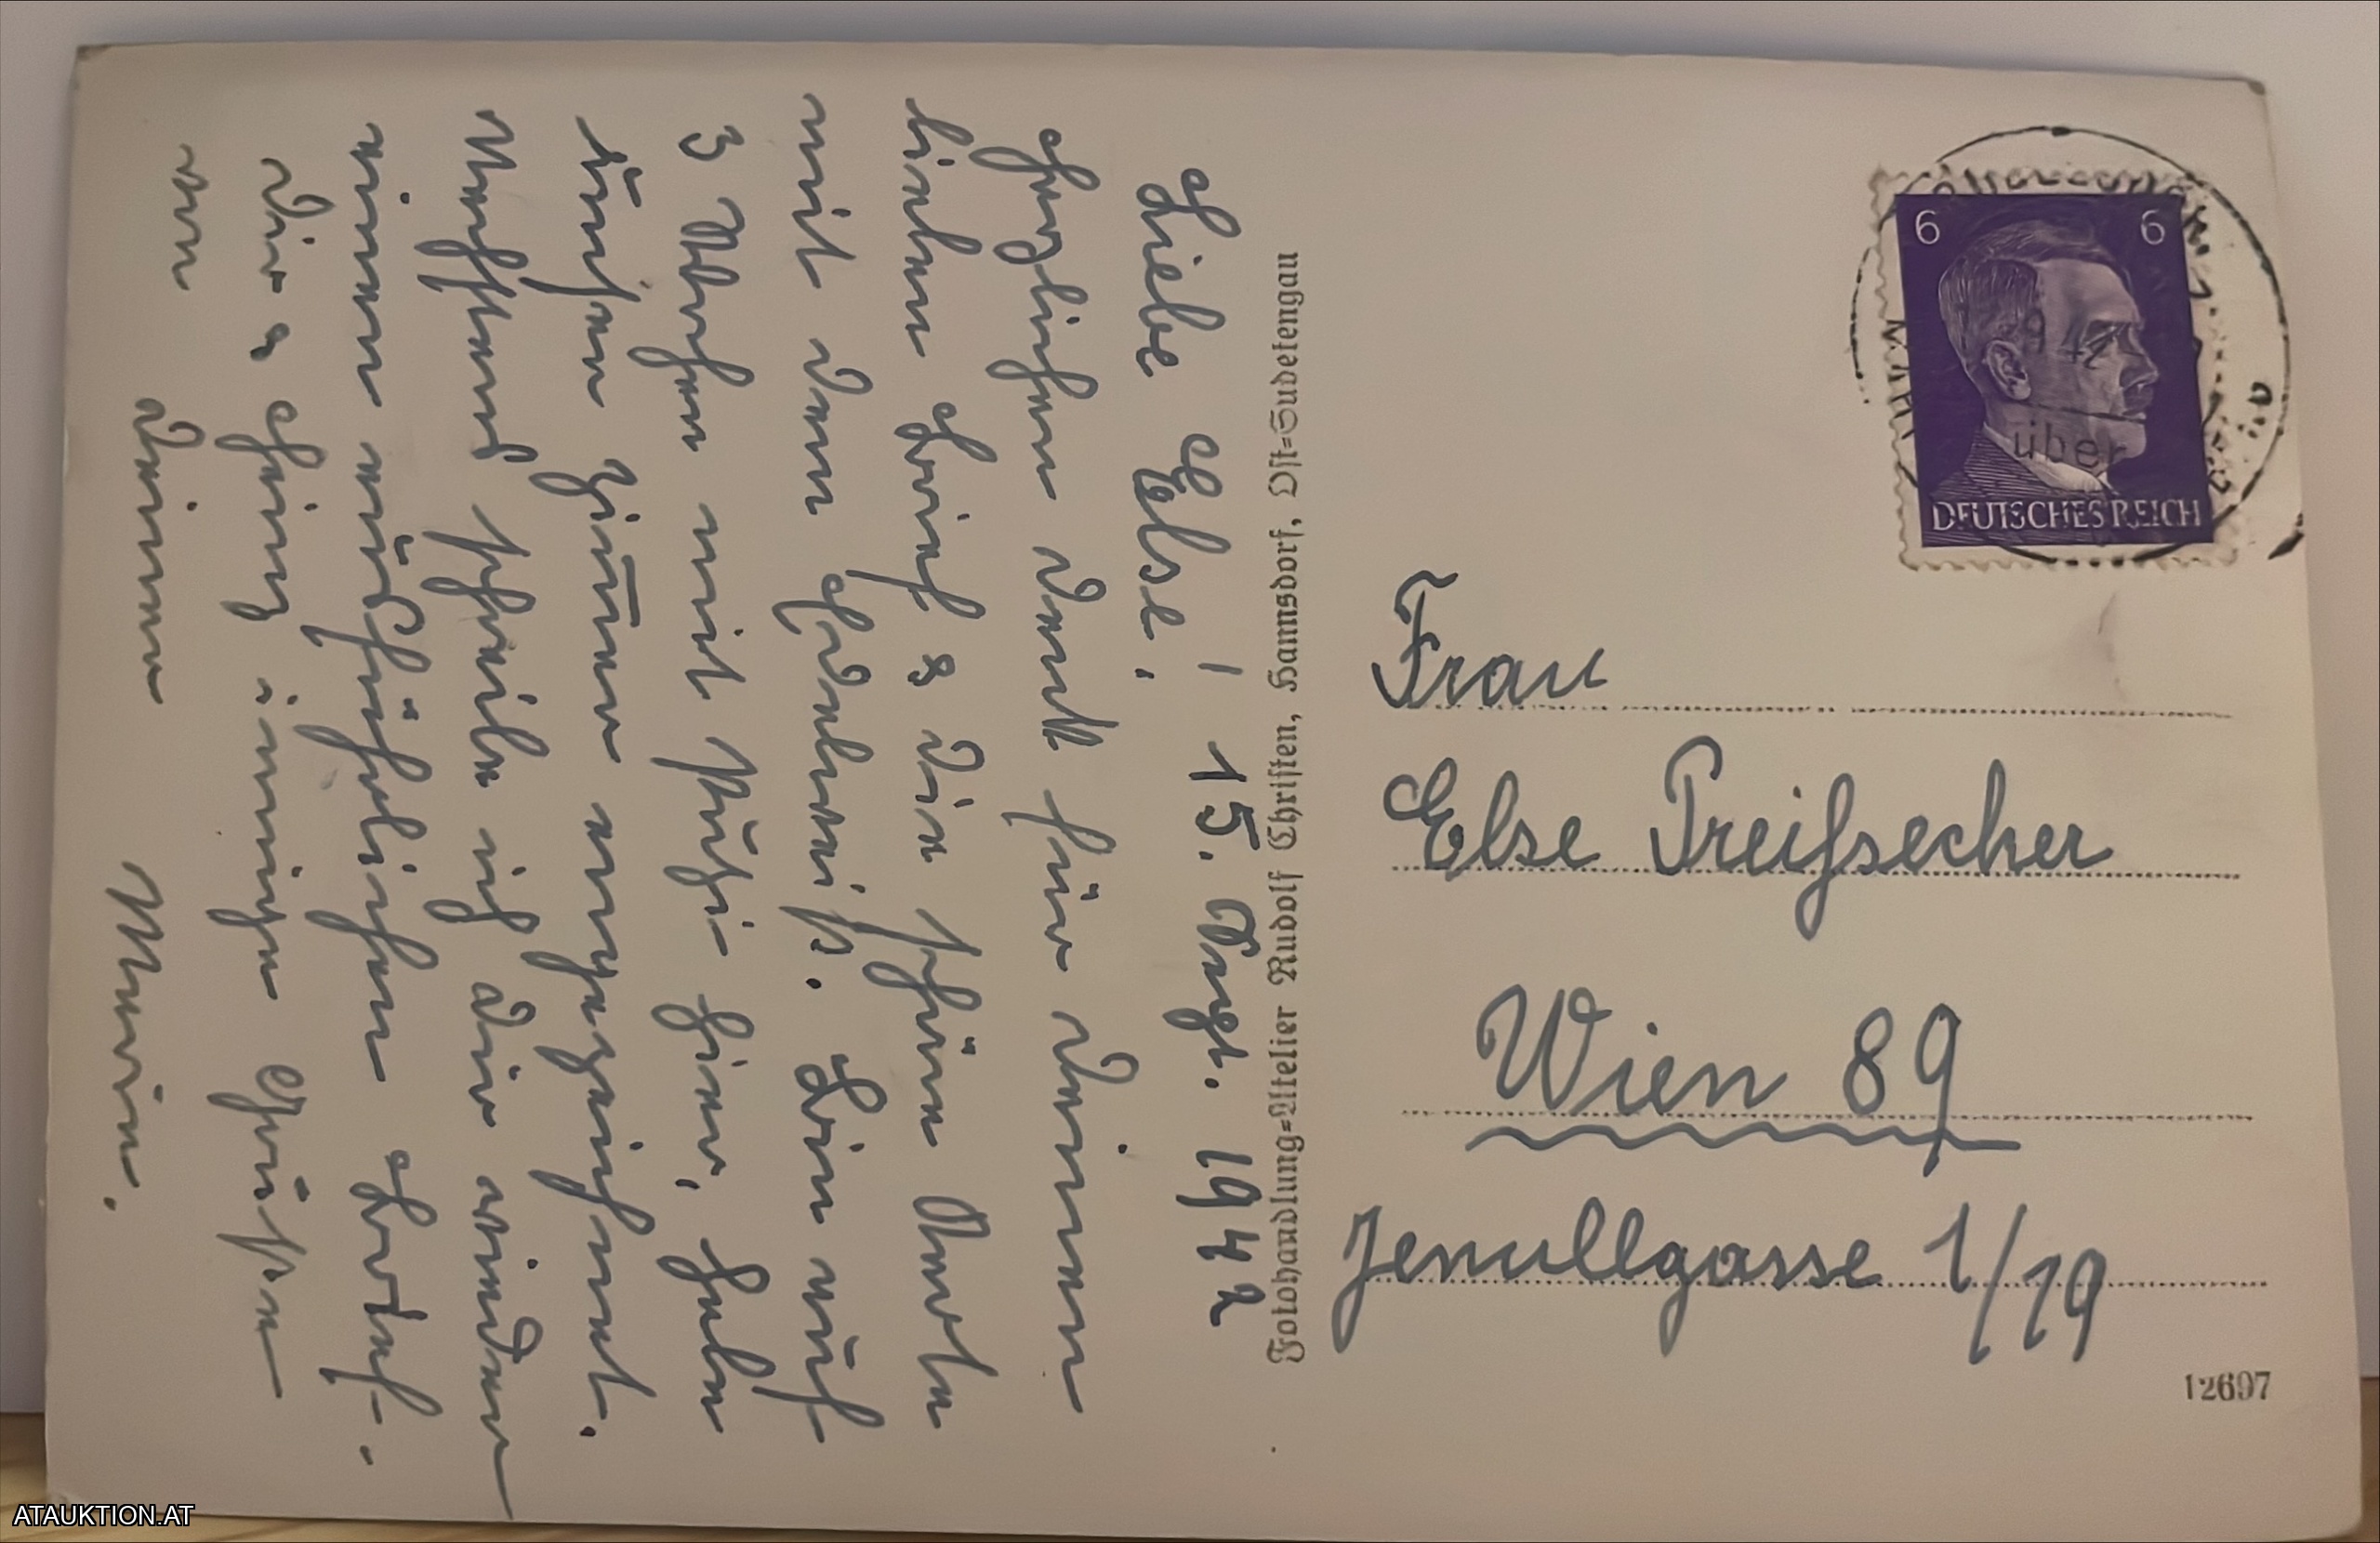 Liebe Else! | 15. Augt. 1942
Herzlichen Dank für Deinen
lieben Brief & die schöne Karte
mit dem Edelweiß. Bin auf
3 Wochen mit Putzi hier, haben
unser Zimmer ausgezeichnet.
Nachstens schreibe ich Dir einen
einen ausführlichen Brief.
Dir & innige Grüße
von
Deiner
Fotohandlung=Atelier Rudolf Christen, Hannsdorf, Ost=Sudetengau
6 6
über
DEUTSCHES REICH
Frau
Else Preifsecher
Wien 89
Jenullgasse 1/19
12697
ATAUKTION.AT